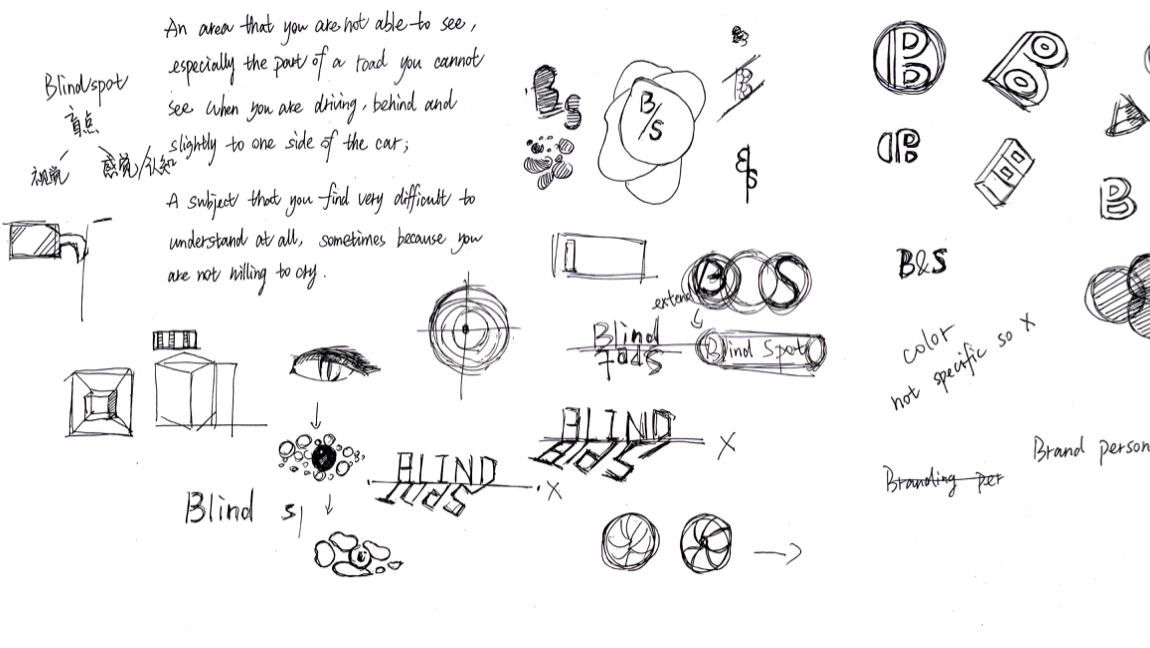 Blindspot
盲点
视觉
感觉/认知
An area that you are not able to see,
especially the part of a road you cannot
see when you are driving, behind and
slightly to one side of the car;
A subject that you find very difficult to
understand at all, sometimes because you
are not willing to cry.
B
S
B/S
B
B
S
B
B
B
B
B&S
B S
extend
Blind
Blind Spot
BLIND
X
BLIND
X
Blind s
color
not specific so X
Branding per
Brand person